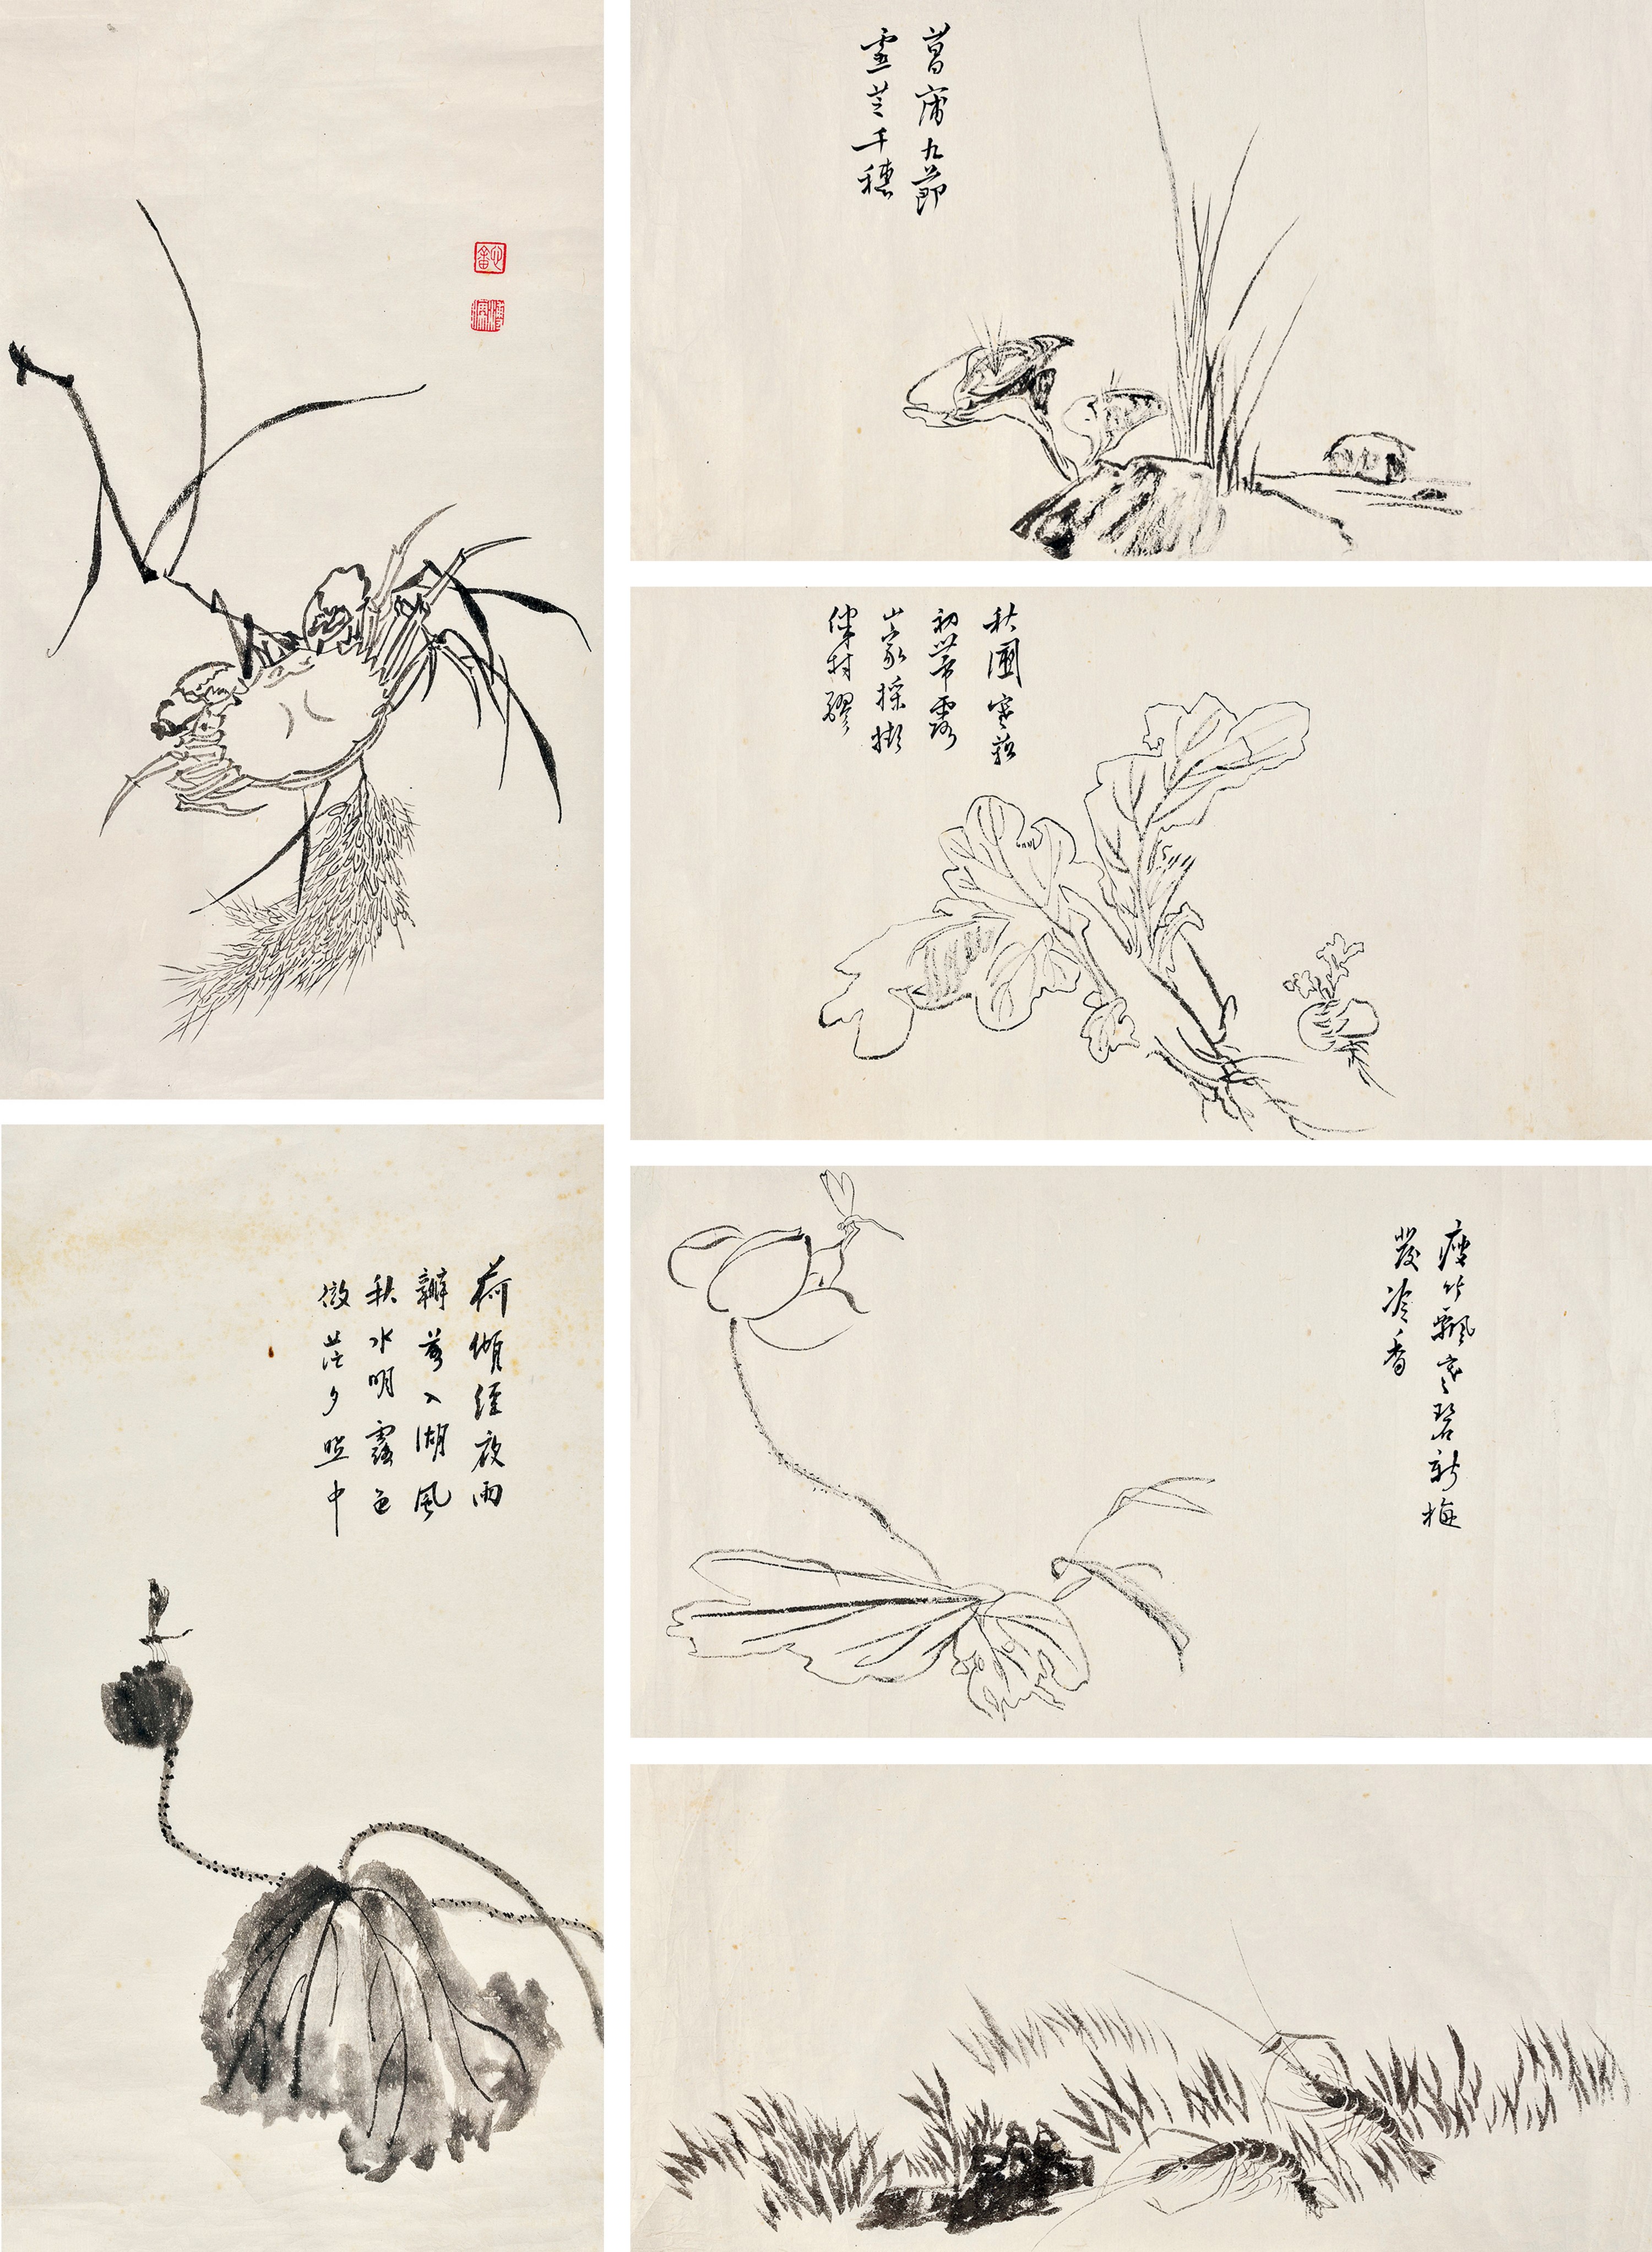 心畬
溥儒
菖蒲九節
靈芝千穗
秋圃寒菘
初帶露
山家採擷
伴村醪
荷傾經夜雨
瓣落入湖風
秋水明霞色
微茫夕照中
瘦竹飄寒碧新梅
發冷香